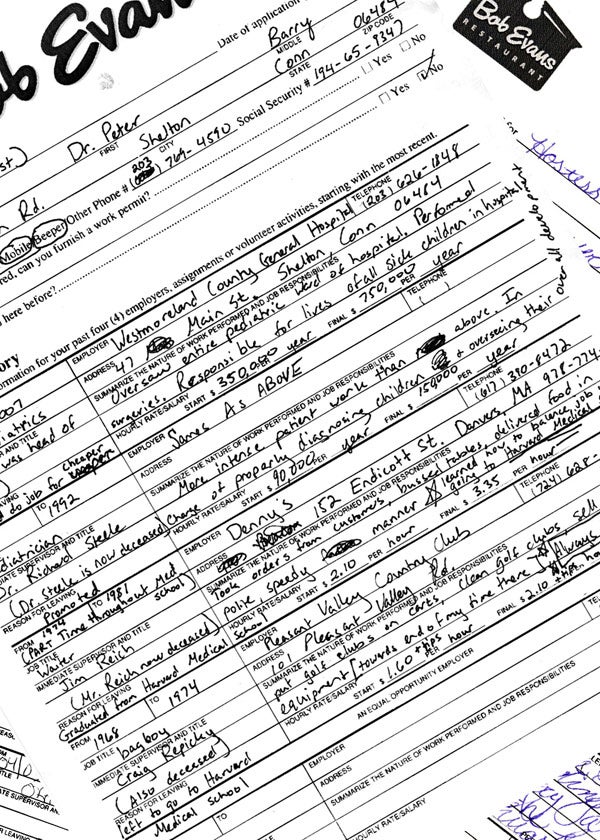 Bob Evans
Bob Evans
RESTAURANT
Date of application
Barry
MIDDLE
06484
ZIP CODE
Dr. Peter
FIRST
Conn
STATE
Shelton
CITY
Social Security # 194-65-7347
Yes No
(203) 769-4590
Rd.
Mobile Beeper Other Phone #
Yes No
can you furnish a work permit?
here before?
information for your past four (4) employers, assignments or volunteer activities, starting with the most recent.
EMPLOYER Westmoreland County General Hospital
TELEPHONE (203) 626-1848
ADDRESS 47 Main St., Shelton Conn 06484
SUMMARIZE THE NATURE OF WORK PERFORMED AND JOB RESPONSIBILITIES
Oversaw entire pediatric ward of hospital. Performed
surgeries. Responsible for lives of all sick children in hospital
HOURLY RATE/SALARY START $ 350,000 PER year FINAL $ 750,000 PER year
EMPLOYER Same As ABOVE
TELEPHONE ( )
ADDRESS
SUMMARIZE THE NATURE OF WORK PERFORMED AND JOB RESPONSIBILITIES
More intense patient work than above. In
charge of properly diagnosing children & overseeing their overall development
HOURLY RATE/SALARY START $ 90,000 PER year FINAL $ 150,000 PER year
was head of
do job for cheaper
TO 1992
Pediatrician
Dr. Richard Steele
(Dr. Steele is now deceased)
REASON FOR LEAVING
Promoted
EMPLOYER Denny's
TELEPHONE (617) 380-8472
ADDRESS 152 Endicott St. Danvers, MA 978-774
SUMMARIZE THE NATURE OF WORK PERFORMED AND JOB RESPONSIBILITIES
Took orders from customers, bussed tables, delivered food in
polite, speedy manner learned how to balance job
going to Harvard Medical
HOURLY RATE/SALARY START $ 2.10 PER hour FINAL $ 3.35 PER hour
FROM 1974 TO 1981
(PART Time throughout Med school)
JOB TITLE Waiter
IMMEDIATE SUPERVISOR AND TITLE
Jim Reich
(Mr. Reich now deceased)
REASON FOR LEAVING
Graduated from Harvard Medical School
EMPLOYER Pleasant Valley Country Club
TELEPHONE (724) 628-
ADDRESS 10 Pleasant Valley Rd.
SUMMARIZE THE NATURE OF WORK PERFORMED AND JOB RESPONSIBILITIES
put golf clubs on carts, clean golf clubs sell
equipment (towards end of my time there) Always
HOURLY RATE/SALARY START $ 1.60 + tips PER hour FINAL $ 2.10 + tips
FROM 1968 TO 1974
JOB TITLE bag boy
IMMEDIATE SUPERVISOR AND TITLE
Craig Repicky
(Also deceased)
REASON FOR LEAVING
left to go to Harvard
Medical school
AN EQUAL OPPORTUNITY EMPLOYER
EMPLOYER
ADDRESS
SUMMARIZE THE NATURE OF WORK PERFORMED AND JOB RESPONSIBILITIES
HOURLY RATE/SALARY
Hostess